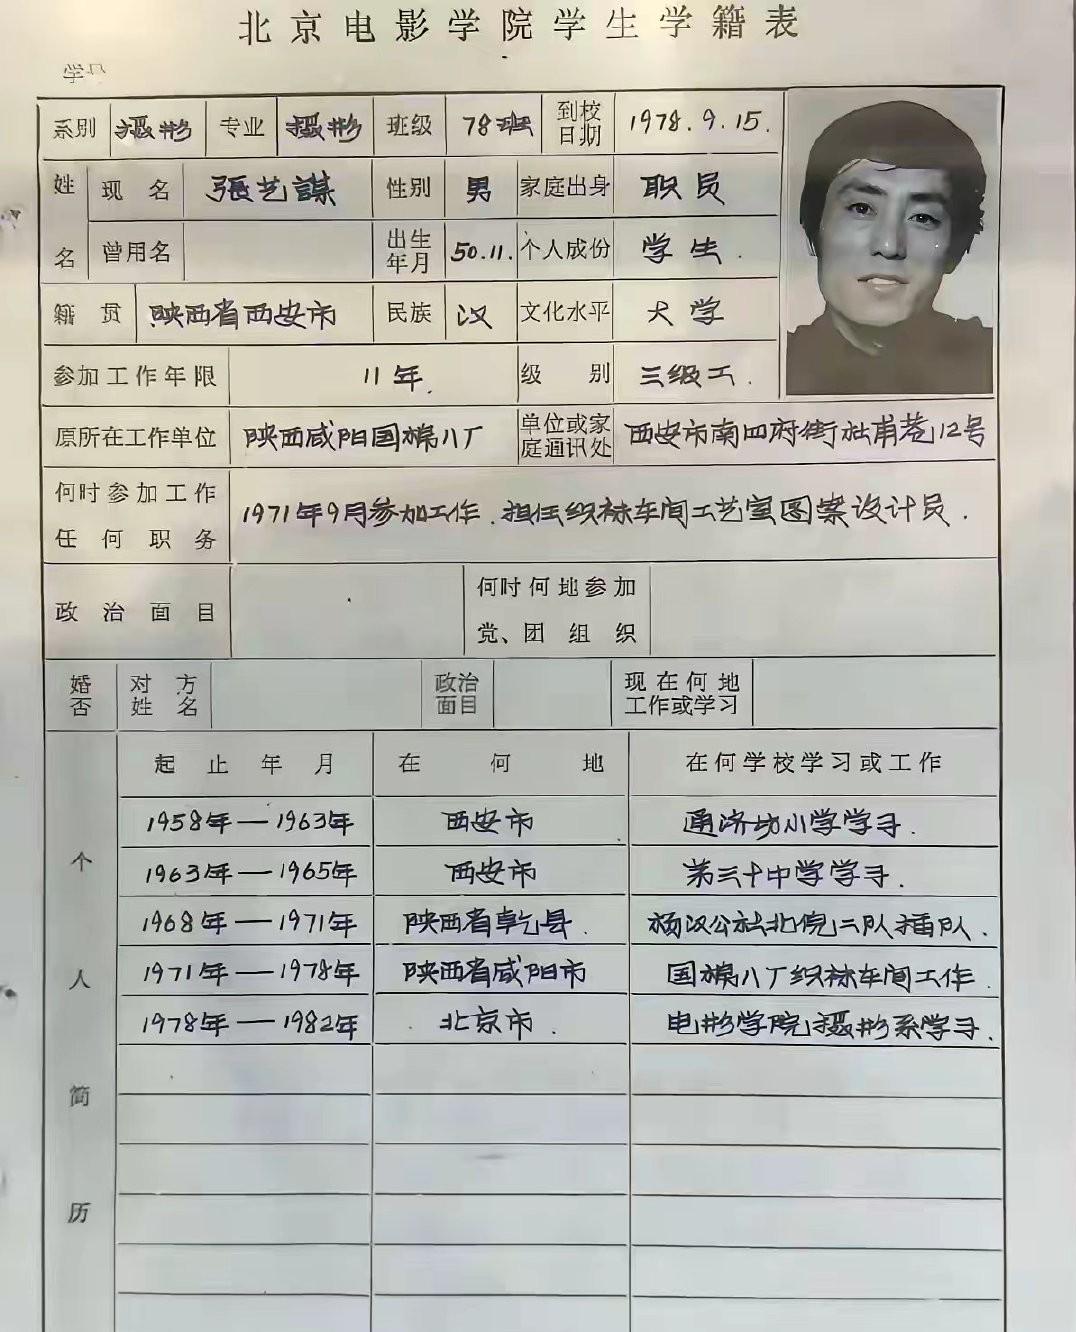 北京电影学院学生学籍表
学号
系别 摄影 专业 摄影 班级 78班 到校日期 1978.9.15.
姓名 现名 張艺謀 性别 男 家庭出身 职员
曾用名 出生年月 50.11. 个人成份 学生.
籍贯 陕西省西安市 民族 汉 文化水平 大学
参加工作年限 11年. 级别 三级工.
原所在工作单位 陕西咸阳国棉八厂 单位或家庭通讯处 西安市南四府街社甫巷12号
何时参加工作任何职务 1971年9月参加工作.担任织袜车间工艺室图案设计员.
政治面目 何时何地参加党、团组织
婚否 对方姓名 政治面目 现在何地工作或学习
个人简历
起止年月 在何地 在何学校学习或工作
1958年—1963年 西安市 通济坊小学学习.
1963年—1965年 西安市 第三十中学学习.
1968年—1971年 陕西省乾县. 杨汉公社北倪二队插队.
1971年—1978年 陕西省咸阳市 国棉八厂织袜车间工作.
1978年—1982年 北京市. 电影学院摄影系学习.